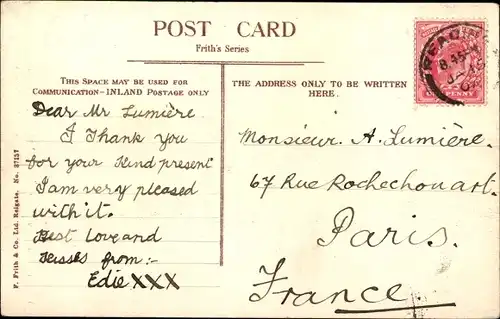 POST CARD
Frith's Series
THIS SPACE MAY BE USED FOR
COMMUNICATION—INLAND POSTAGE ONLY
THE ADDRESS ONLY TO BE WRITTEN
HERE.
Dear Mr Lumière
I Thank you
for your Kind present
I am very pleased
with it.
Best Love and
Kisses from:-
Edie XXX
Monsieur. A. Lumière.
67 Rue Rochechouart.
Paris.
France.
F. Frith & Co. Ltd. Reigate. No. 27157
READING
8.45 PM
ONE PENNY